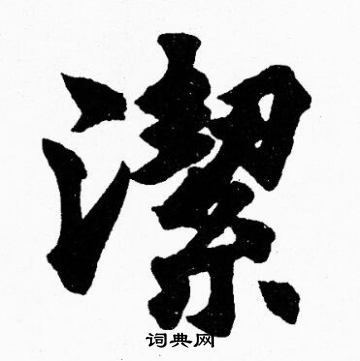 潔
词典网